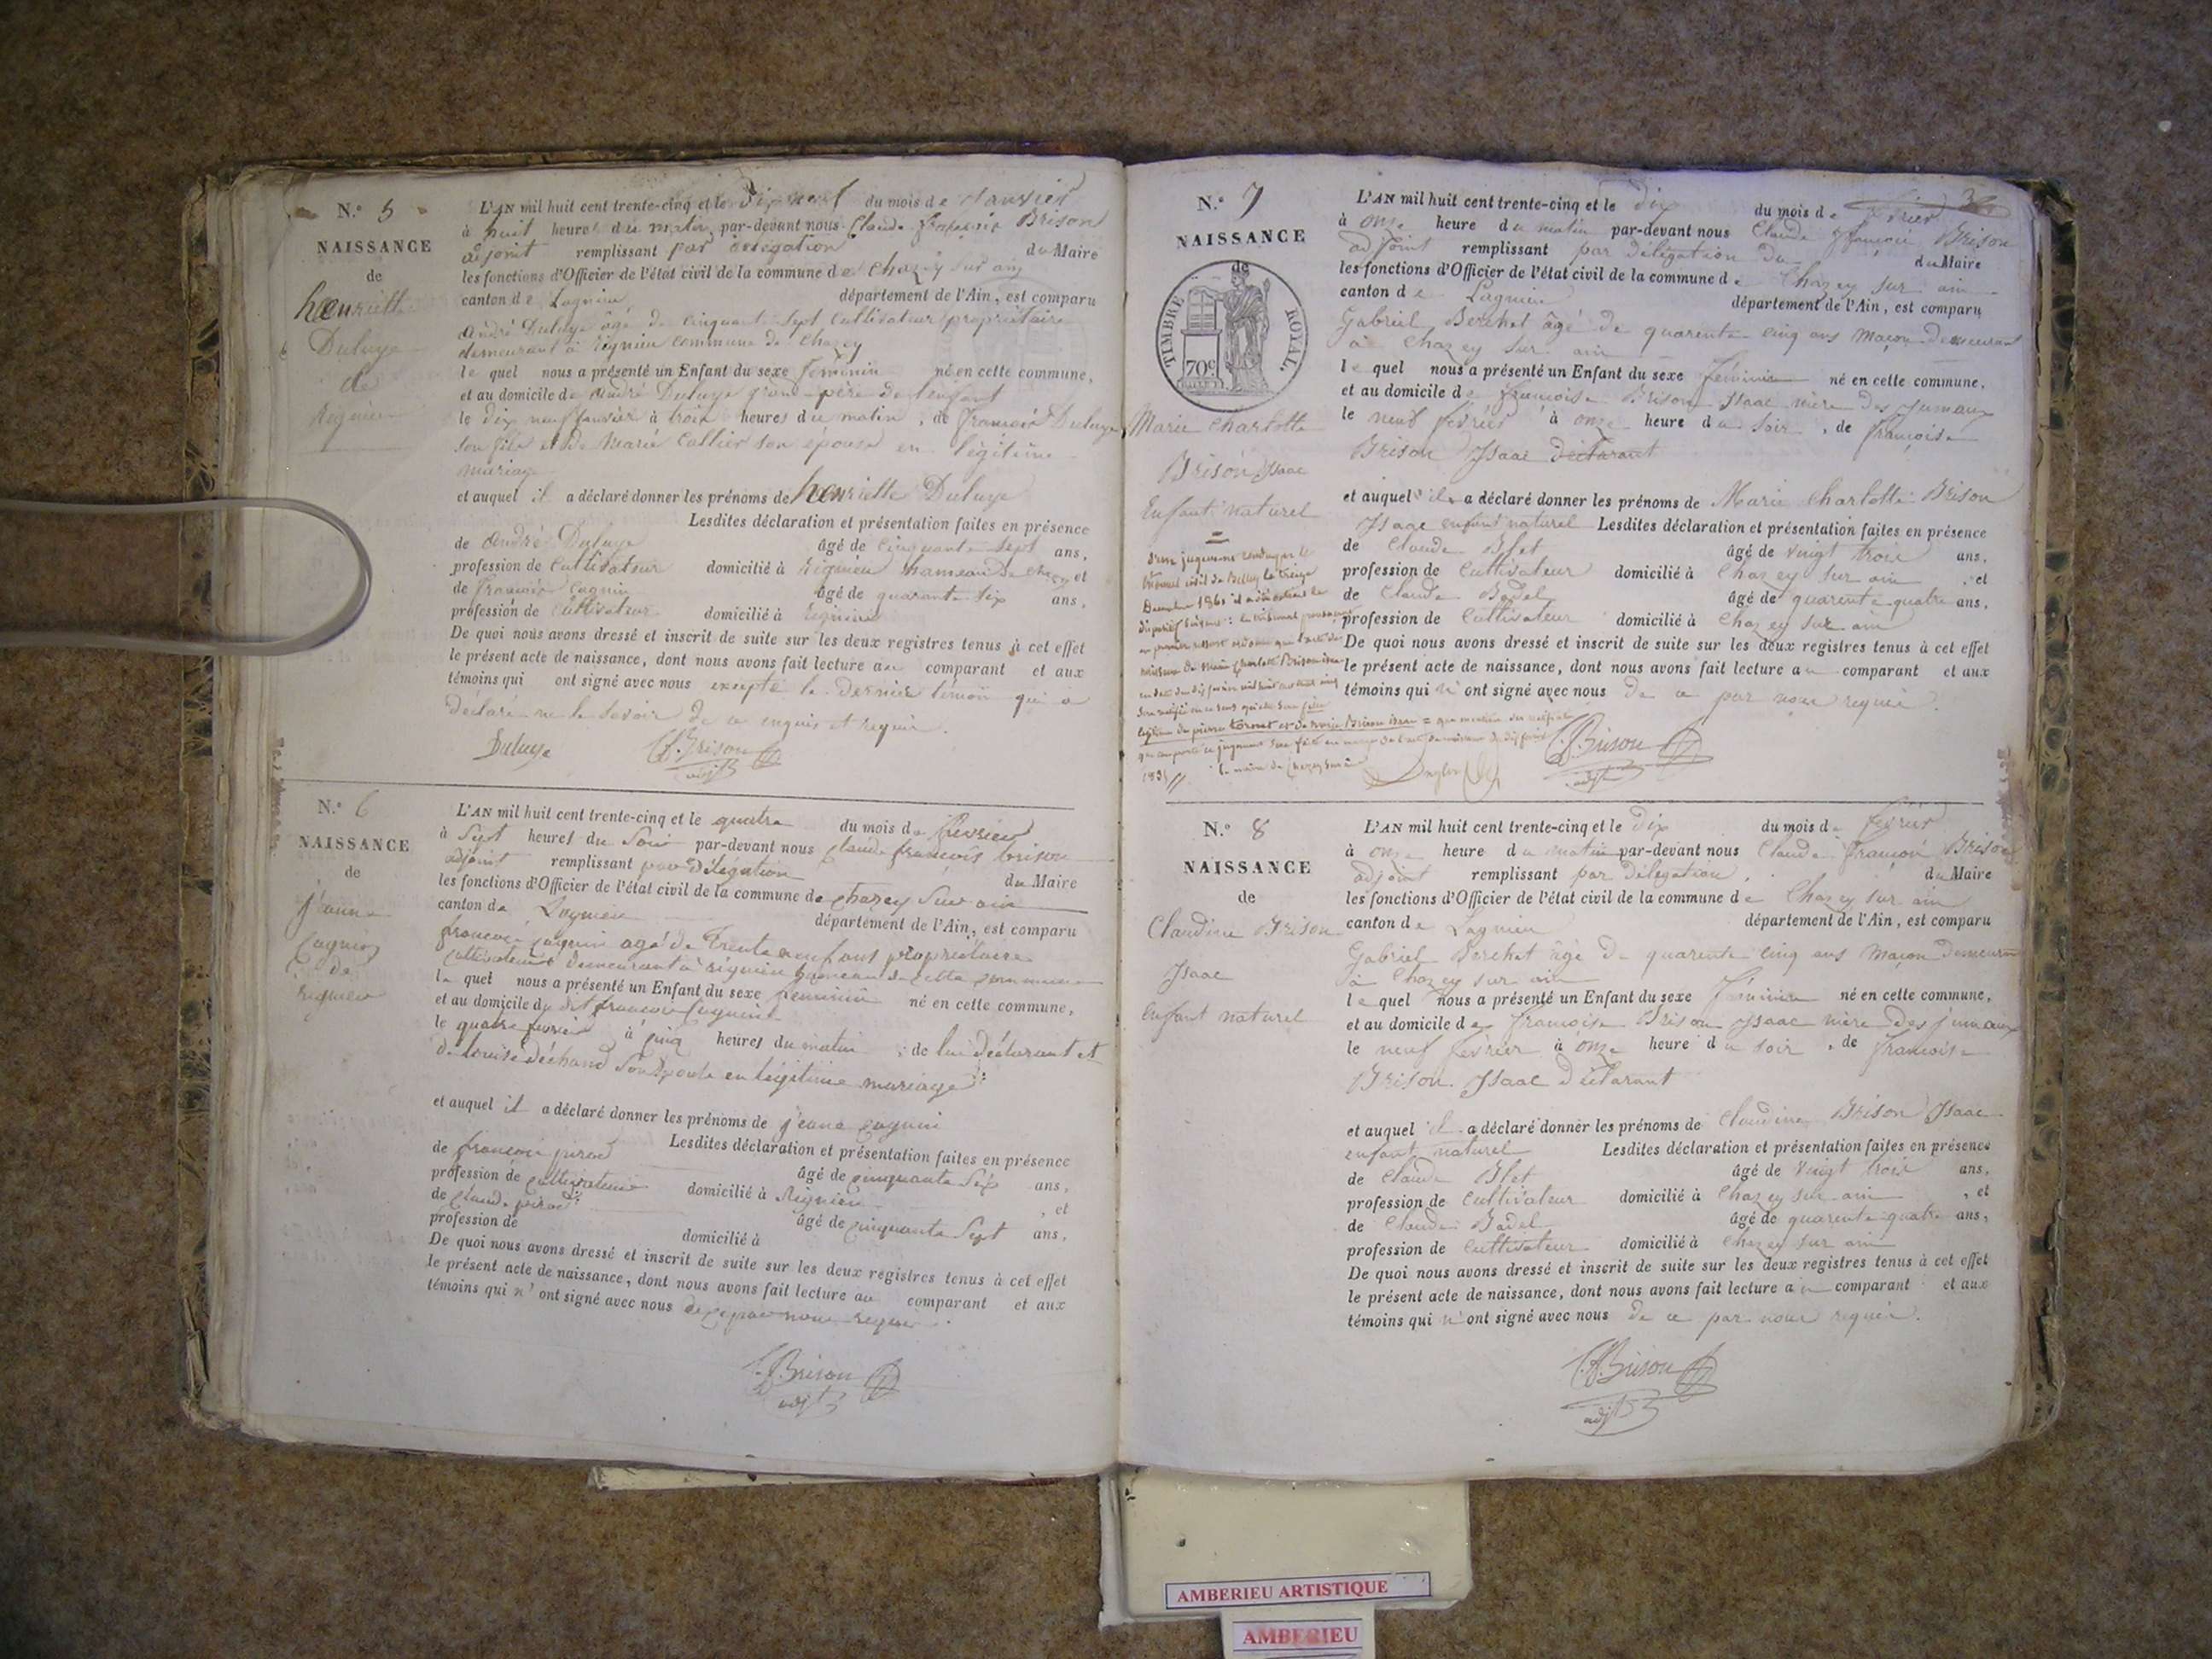 N.° 5
NAISSANCE
de
henriette
Duluye
de
Rignieu
L'AN mil huit cent trente-cinq et le dix neuf du mois de Janvier
à huit heures du matin par-devant nous Claude françois Brison
adjoint remplissant par délégation du Maire
les fonctions d'Officier de l'état civil de la commune de Chazey sur ain
canton de Lagnieu département de l'Ain, est comparu
André Duluye âgé de cinquante sept Cultivateur propriétaire
demeurant à rignieu commune de Chazey
le quel nous a présenté un Enfant du sexe féminin né en cette commune,
et au domicile de André Duluye grand-père de l'enfant
le dix neuf Janvier à trois heures du matin, de françois Duluye
son fils et de Marie Collier son épouse en légitime
mariage
et auquel il a déclaré donner les prénoms de henriette Duluye
Lesdites déclaration et présentation faites en présence
de André Duluye âgé de cinquante sept ans,
profession de Cultivateur domicilié à Rignieu hameau de chazey et
de françois Cagnin âgé de quarante six ans,
profession de Cultivateur domicilié à Rignieu
De quoi nous avons dressé et inscrit de suite sur les deux registres tenus à cet effet
le présent acte de naissance, dont nous avons fait lecture au comparant et aux
témoins qui ont signé avec nous excepté le dernier témoin qui a
déclaré ne le savoir de ce enquis et requis.
Duluye C.f. Brison
adjt
N.° 6
NAISSANCE
de
jeanne
Cagnin
de
rignieu
L'AN mil huit cent trente-cinq et le quatre du mois de février
à Sept heures du Soir par-devant nous Claude françois brison
adjoint remplissant par délégation du Maire
les fonctions d'Officier de l'état civil de la commune de chazey Sur ain
canton de Lagnieu département de l'Ain, est comparu
françois cagnin agé de trente neuf ans propriétaire
cultivateur demeurant à rignieu hameau de cette commune
le quel nous a présenté un Enfant du sexe feminin né en cette commune,
et au domicile du dit françois Cagnin
le quatre fevrier à cinq heures du matin, de lui déclarant et
de louise déchand Son épouse en légitime mariage
et auquel il a déclaré donner les prénoms de jeane cagnin
Lesdites déclaration et présentation faites en présence
de françois âgé de cinquante Six ans,
profession de cultivateur domicilié à Rignieu, et
de Claude âgé de cinquante Sept ans,
profession de domicilié à
De quoi nous avons dressé et inscrit de suite sur les deux registres tenus à cet effet
le présent acte de naissance, dont nous avons fait lecture au comparant et aux
témoins qui n'ont signé avec nous de ce par nous requis.
C.f. Brison
adjt
N.° 7
NAISSANCE
de
TIMBRE ROYAL.
70c
Marie Charlotte
Brison Isaac
Enfant naturel
L'AN mil huit cent trente-cinq et le dix du mois de février
à onze heure du matin par-devant nous Claude françois Brison
adjoint remplissant par délégation du du Maire
les fonctions d'Officier de l'état civil de la commune de Chazey sur ain
canton de Lagnieu département de l'Ain, est comparu
Gabriel Berchet âgé de quarente cinq ans Maçon demeurant
à Chazey sur ain
le quel nous a présenté un Enfant du sexe féminin né en cette commune,
et au domicile de françoise Brison Isaac mère des Jumaux
le neuf février à onze heure du soir, de françoise
Brison Isaac déclarant
et auquel il a déclaré donner les prénoms de Marie Charlotte Brison
Isaac enfant naturel Lesdites déclaration et présentation faites en présence
de Claude Blet âgé de vingt trois ans,
profession de Cultivateur domicilié à Chazey sur ain, et
de Claude Badel âgé de quarente quatre ans,
profession de Cultivateur domicilié à Chazey sur ain
De quoi nous avons dressé et inscrit de suite sur les deux registres tenus à cet effet
le présent acte de naissance, dont nous avons fait lecture au comparant et aux
témoins qui n'ont signé avec nous de ce par nous requis.
C.f. Brison
adjt
N.° 8
NAISSANCE
de
Claudine Brison
Isaac
Enfant naturel
L'AN mil huit cent trente-cinq et le dix du mois de février
à onze heure du matin par-devant nous Claude françois Brison
adjoint remplissant par délégation du Maire
les fonctions d'Officier de l'état civil de la commune de Chazey sur ain
canton de Lagnieu département de l'Ain, est comparu
Gabriel Berchet âgé de quarente cinq ans Maçon demeurant
à Chazey sur ain
le quel nous a présenté un Enfant du sexe féminin né en cette commune,
et au domicile de françoise Brison Isaac mère des jumaux
le neuf février à onze heure du soir, de françoise
Brison Isaac déclarant
et auquel il a déclaré donner les prénoms de Claudine Brison Isaac
enfant naturel Lesdites déclaration et présentation faites en présence
de Claude Blet âgé de vingt trois ans,
profession de Cultivateur domicilié à Chazey sur ain, et
de Claude Badel âgé de quarente quatre ans,
profession de Cultivateur domicilié à Chazey sur ain
De quoi nous avons dressé et inscrit de suite sur les deux registres tenus à cet effet
le présent acte de naissance, dont nous avons fait lecture au comparant et aux
témoins qui n'ont signé avec nous de ce par nous requis.
C.f. Brison
adjt
AMBERIEU ARTISTIQUE
AMBERIEU